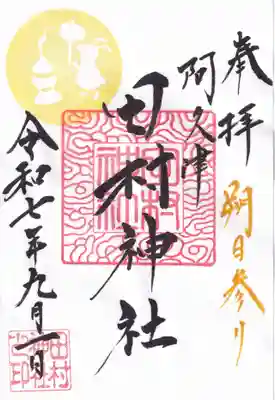 奉拝
朔日参り
阿久津
田村神社
令和七年九月一日
田村
神社
之印